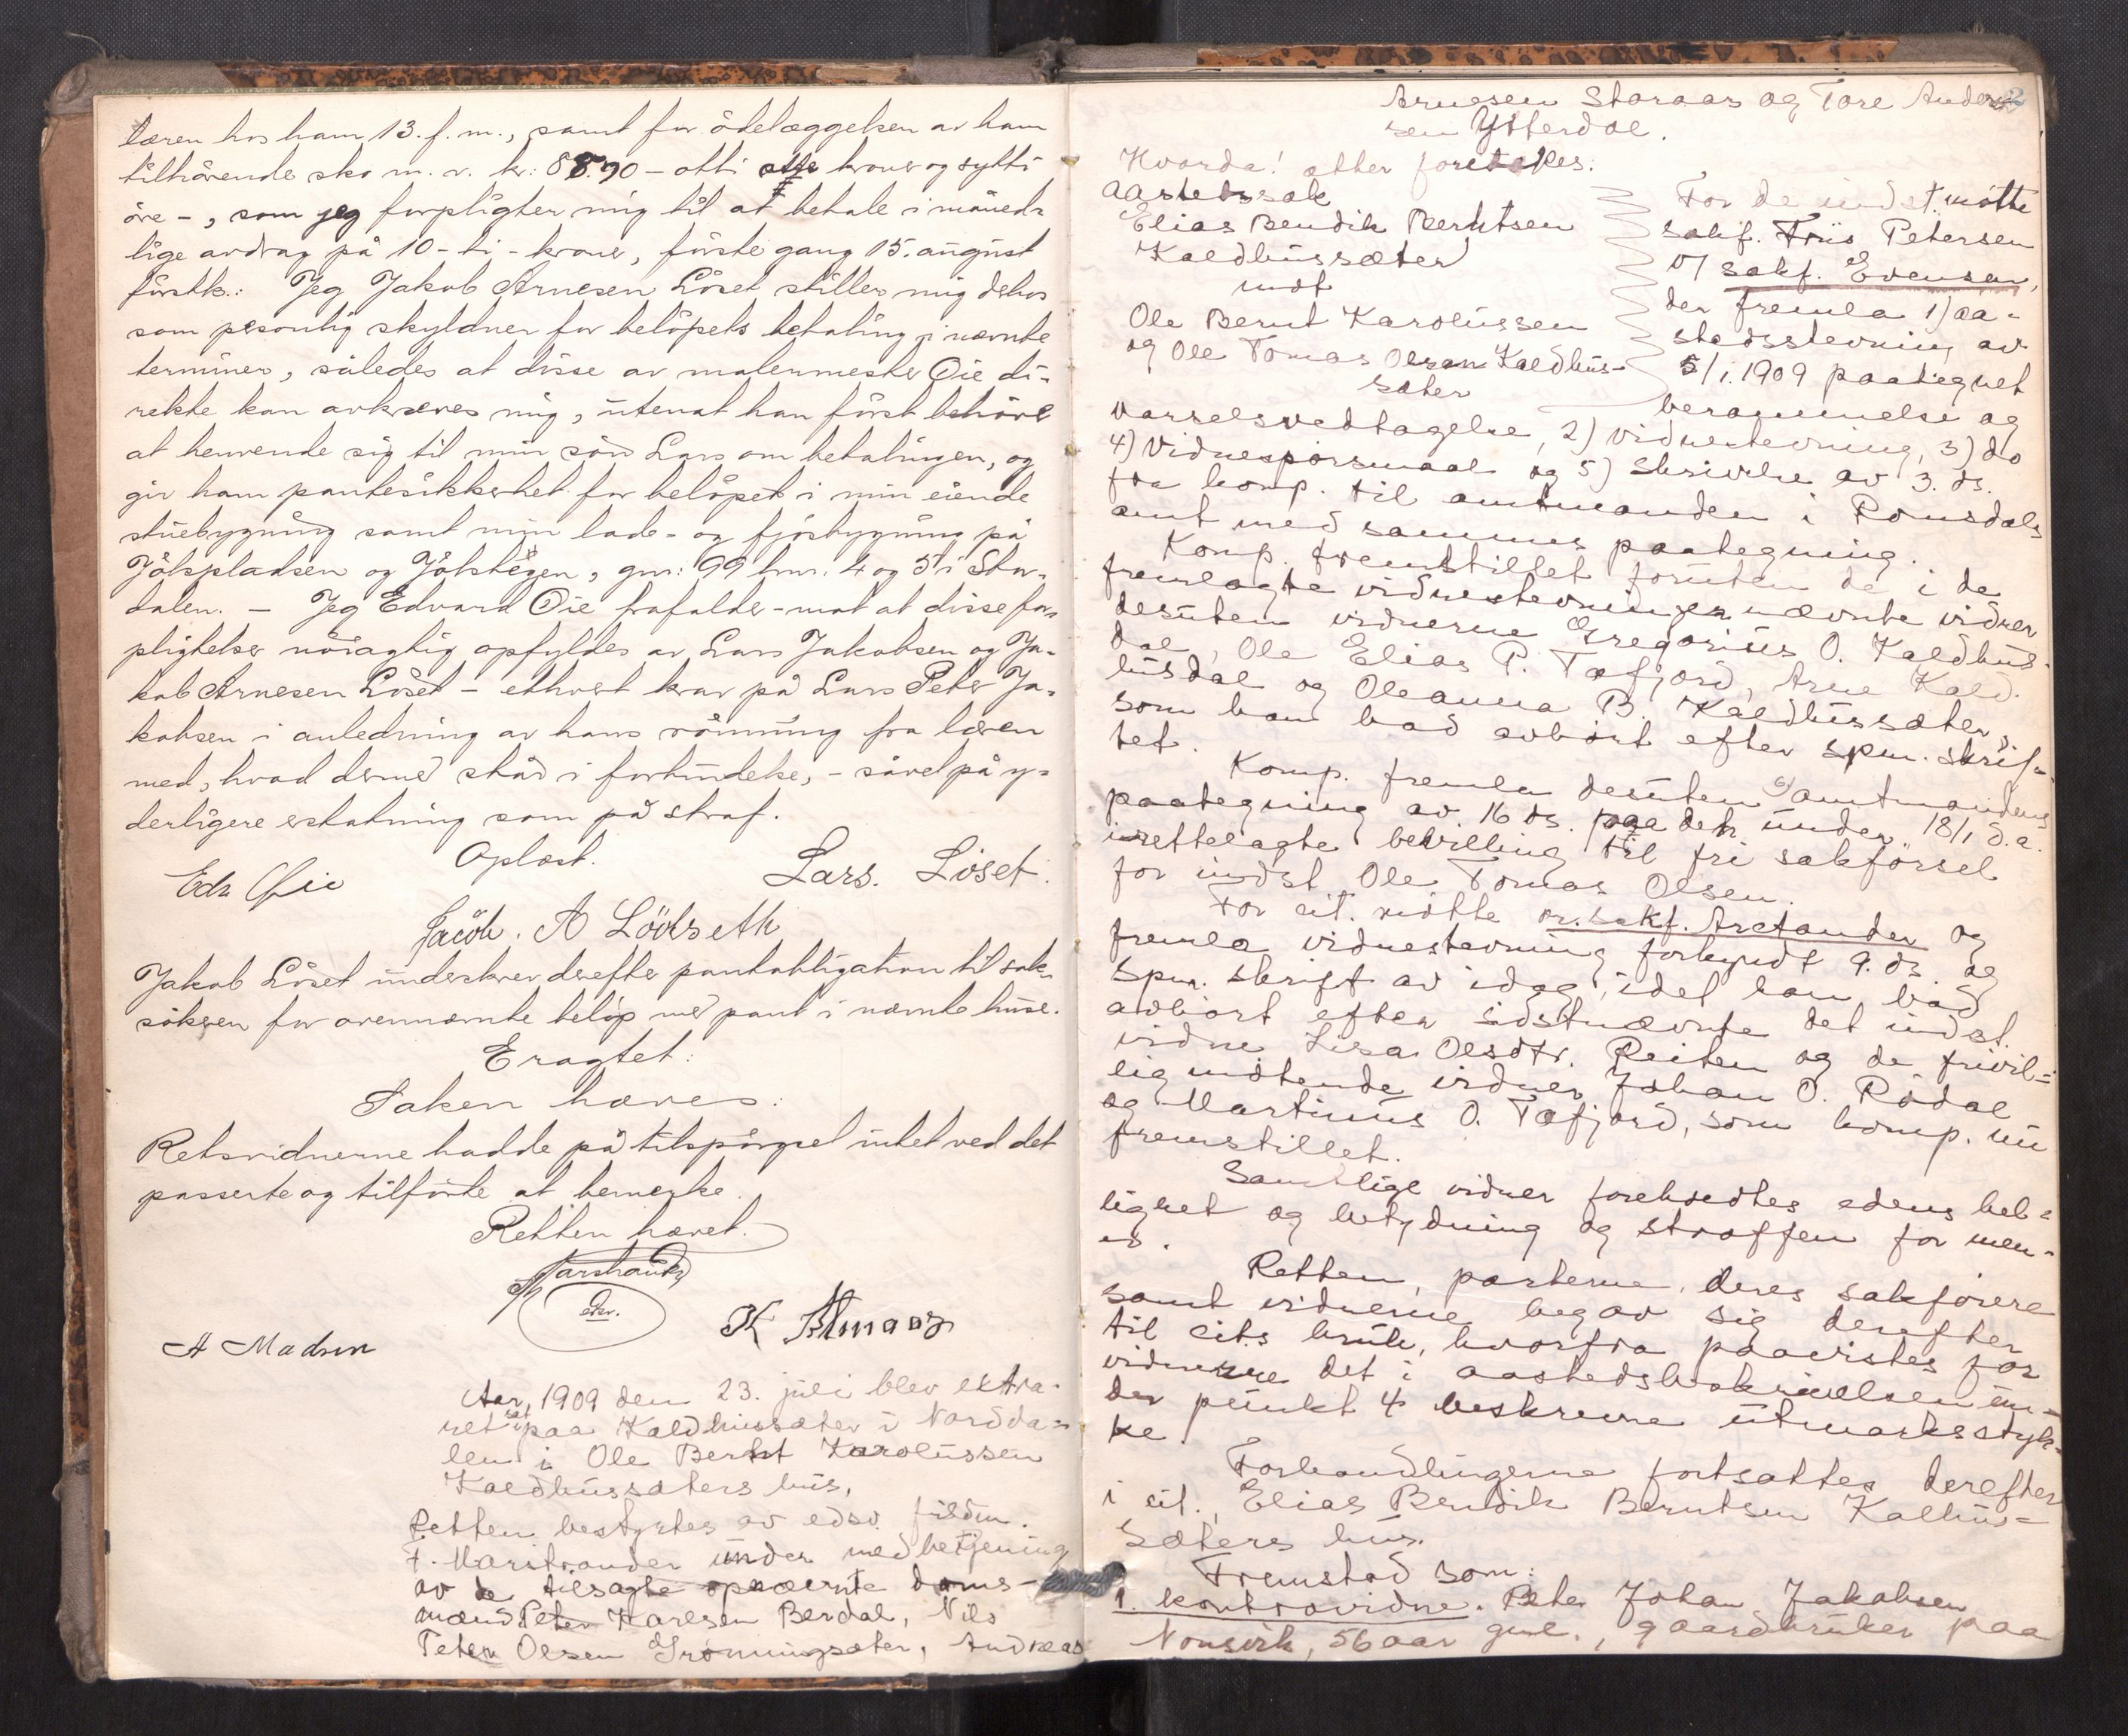 læren hos ham 13. f. m., samt for ödelæggelsen av ham
tilhörende sko m. v. kr: 88.90 - otti otte kroner og nytti
öre -, som jeg forpligter mig til at betale i måneds
lige avdrag på 10 - ti - kroner, förste gang 15. august
förstk.: Jeg Jakob Arnesen Löset stiller mig dehos
som personlig skyldner for belöpets betaling i nævnte
terminer, således at disse av malermester Öie di-
rekte kan avkræves mig, utenat han först behöve
at henvende sig til min sön Lars om betalingen, og
gir ham pantesikkerhet for belöpet i min eiende
stuebygning samt min lade- og fjösbygning på
Jölspladsen og Jölstegen, gnr: 99 bnr: 4 og 5 i Stor-
dalen. - Jeg Edvard Öie frafalder - mot at disse for-
pligtelser nöiagtig opfyldes av Lars Jakobsen og Ja-
kob Arnesen Löset - ethvert krav på Lars Peter Ja-
kobsen i anledning av hans römning fra læren
med, hvad dermed står i forbindelse, - såvel på y-
derligere erstatning som på straf.
Oplæst.
Edv Öie Lars. Löset.
Jacob. A Lödseth
Jakob Löset underskrev derefter pantobligation til sak-
sökeren for ovennævnte belöp med pant i nævnte huse.
Eragtet:
Saken hæves:
Retsvidnerne hadde på tilspörgsel intet ved det
passerte og tilförte at bemerke.
Retten hævet.
Marstrander
edsv.
A Madsen K
Aar, 1909 den 23. juli blev extra-
ret sat paa Kaldhussæter i Nordda-
len i Ole Bernt Karolussen
Kaldhussæters hus,
Retten bestyrtes av edsv. fuldm.
F. Marstrander under medbetjening
av de tilsagte opnævnte doms-
mænd Peter Karlsen Berdal, Nils
Peter Olsen Grönningsæter, Andreas
2
Arnesen Storaas og Tore Anders
sen Ytterdal.
Hvorda! atter foretakes:
Aastedssak
Elias Bendik Berntsen
Kaldhussæter
mot
Ole Bernt Karolussen
og Ole Tomas Olsen Kaldhus-
sæter
For de indst. mötte
sakf. Friis Petersen
v/ sakf. Evensen,
der fremla 1) aa-
stedsstevning av
5/1. 1909 paategnet
berammelse og
varselsvedtagelse, 2) vidnestevning, 3) do
4) Vidnespörsmaal og 5) Skrivelse av 3. ds.
fra komp. til amtmanden i Romsdals
amt med sammes paategning.
Komp. fremstillet foruten de i de
fremlagte vidnestevninger nævnte vidner
desuten vidnerne Gregorius O. Kaldhus-
dal, Ole Elias P. Tafjord, Arne Kald-
husdal og Oleanna B. Kaldhussæter,
som han bad avhört efter spm. skrif-
tet.
Komp. fremla desuten 6) amtmandens
paategning av 16 ds. paa den under 18/1 d.a.
irettelagte bevilling til fri sakförsel
for indst. Ole Tomas Olsen.
For cit. mötte or. sakf. Arctander og
fremla vidnestevning forkyndt 9. ds og
spm. skrift av idag, idet han bad
avhört efter sidstnævnte det indst.
vidne Lisa Olsdtr. Reiten og de frivil-
lig mötende vidner Johan O. Rödal
og Martinus O. Tafjord, som komp. nu
fremstillet.
Samtlige vidner foreholdtes edens hel-
lighet og betydning og straffen for men-
ed.
Retten, parterne, deres sakförere
samt vidnerne begav sig derefter
til cits bruk, hvorfra paavistes for
vidnerne det i aastedsbeskrivelsen un-
der punkt 4 beskrevne utmarksstyk-
ke.
Forhandlingerne fortsattes derefter
i cit., Elias Bendik Berntsen Kalhus-
sæters hus.
Fremstod som:
1. kontravidne. Peter Johan Jakobsen
Nonsvik, 56 aar gml., gaardbruker paa